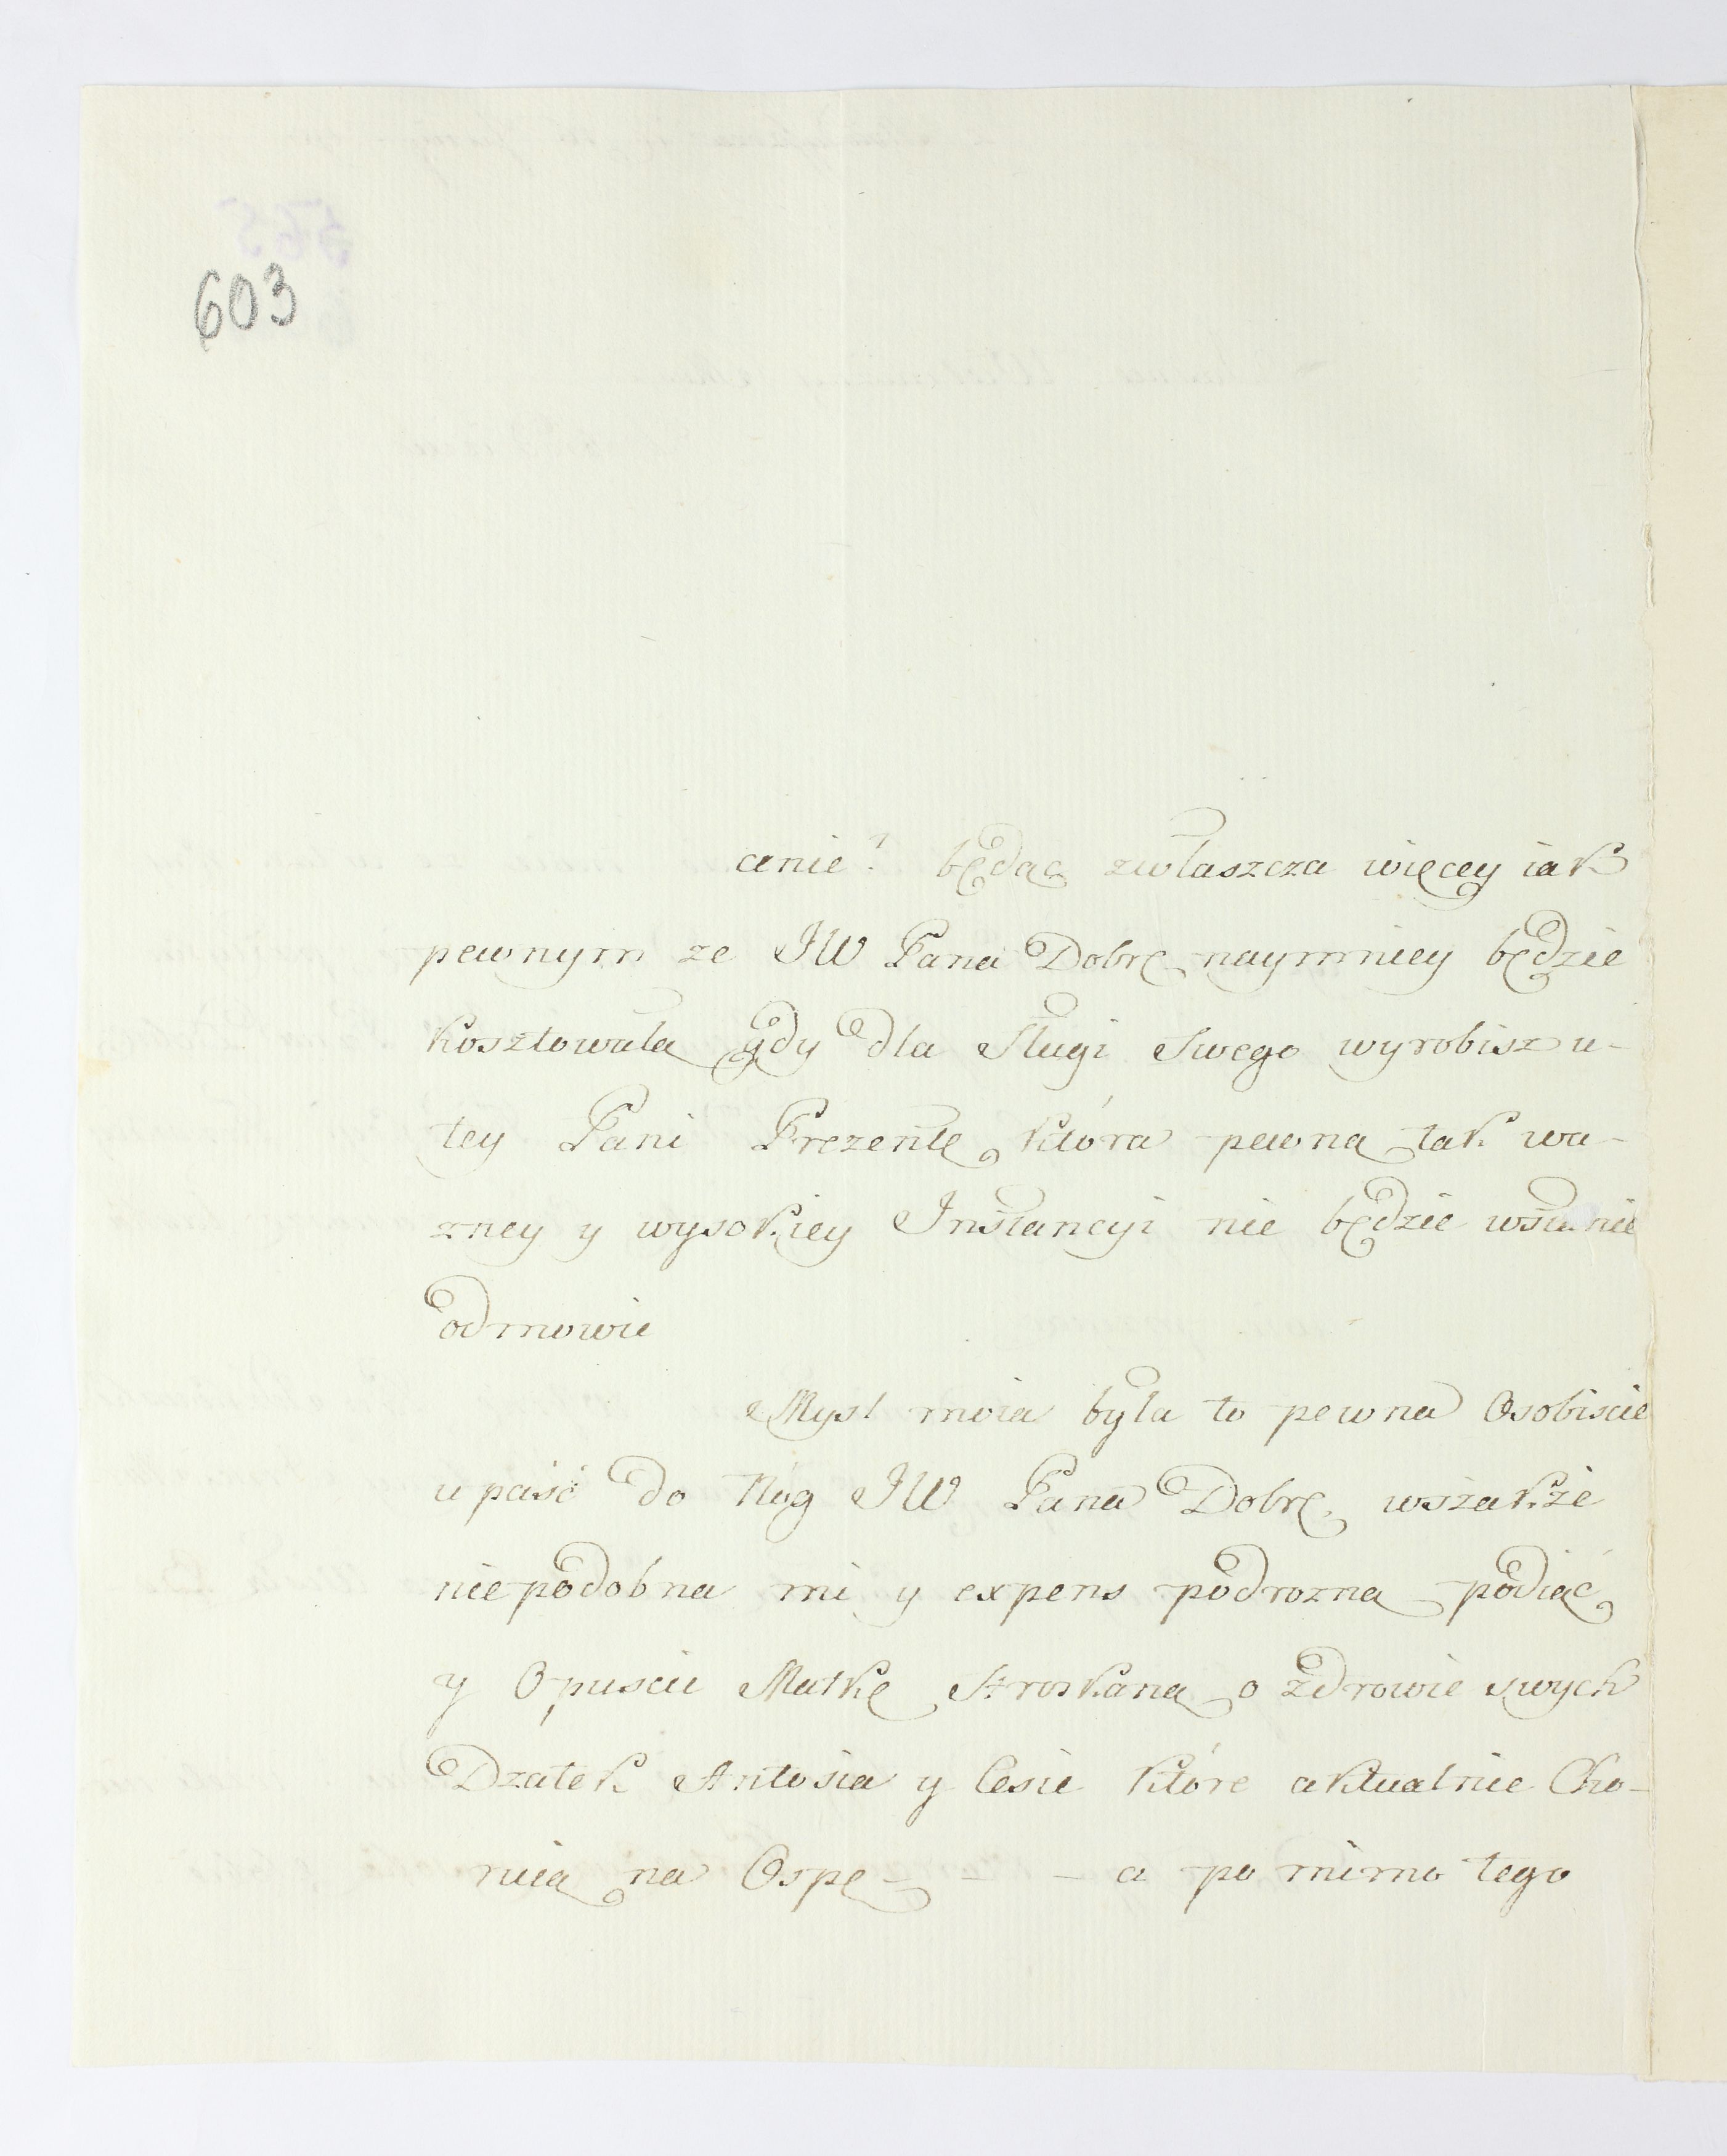 603
anie? będąc zwłaszcza więcey iak
pewnym ze JW Pana Dobrę naymniey będzie
kosztowała gdy dla Sługi Swego wyrobisz u-
tey Pani Prezentę która pewną tak wa-
zney y wysokiey Instancyi nie będzie wstanie
odmowie
Mysl moia była to pewna Osobiscie
upaść do Nóg JW Pana Dobrę wszakże
niepodobna mi y expens podrozną podiąć
y Opuscie Matkę Stroskaną o zdrowie swych
Dzatek Antosia y Cesie które aktualnie Cho-
ruią na Ospę - - - a po mimo tego